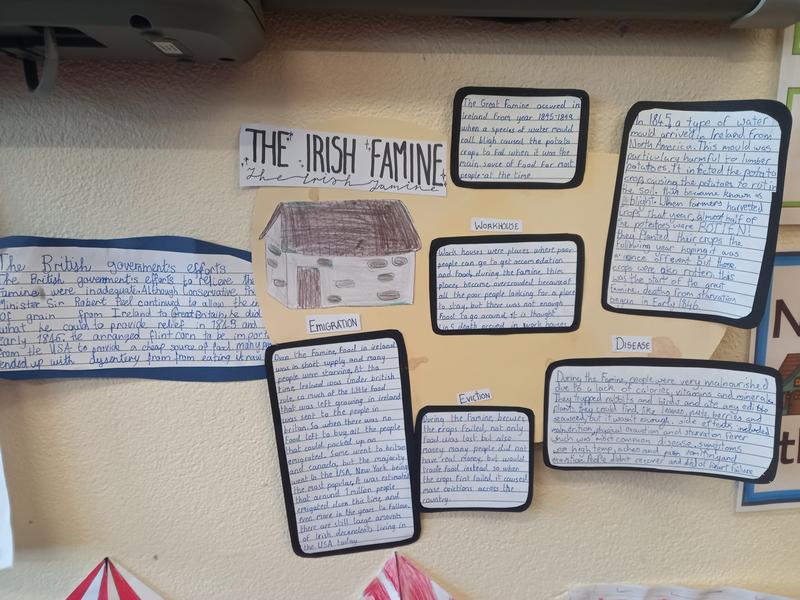 THE IRISH FAMINE
The Irish Famine
The Great Famine occured in
Ireland from year 1845-1849
when a species of water mould
call bligh caused the potato
crops to fail when it was the
main souce of food for most
people at the time
In 1845, a type of water
mould arrived in Ireland from
North America. This mould was
particulary harmful to lumber
potatoes. It infected the potato
crops causing the potatoes to rot in
the soil. this became known as
blight. When farmers harvested
crops that year, almost half of
the potatoes were ROTTEN!
then planted their crups the
following year hoping it was
a once off event but these
crops were also rotten. this
was the start of the great
famine, deaths from starvation
began in Early 1846.
WORKHOUSE
Work houses were places where poor
people can go to get accomodation
and food, during the famine, this
places become overcrowded because of
all the poor people looking for a place
to stay, but there was not enough
food to go around, it is thought
deaths occured in work houses
The British government's efforts
The British government's efforts to relieve the
famine were inadequate. Although Conservative
Minister Sir Robert Peel continued to allow the
of grain from Ireland to Great Britain, he did
what he could to provide relief in 1845 and
early 1846. He arranged flint corn to be import
from the USA to provide a cheap source of food, many
ended up with dysentery from from eating it raw
EMIGRATION
During the Famine, food in Ireland
was in short supply and many
people were starving. At the
time Ireland was under british
rule, so much of the little food
that was left growing in ireland
was sent to the people in
britain. So when there was no
food left to buy, all the people
that could packed up an
emigrated. Some went to britain
and canada, but the majority
went to the USA, New York being
the most popular. It was estimated
that around 1 million people
emigated duen this time, and
even more in the years to follow.
there are still large amounts
of Irish decendents living in
the USA today.
EVICTION
During the famine, because
the crops failed, not only
food was lost but also
money. many people did not
have real money, but would
trade food instead. so when
the crops first failed, it caused
mass evictions across the
country.
DISEASE
During the Famine, people were very malnourished
due to a lack of calories, vitamins and minerals
They trapped rabbits and birds and ate any edible
plant they could find, like leaves, nuts, berries and
seaweed, but it wasn't enough, side effects included
malnutrition, physical exhaustion and starvation fever
which was most common disease. symptoms
were high temp, aches and pain, vomiting and